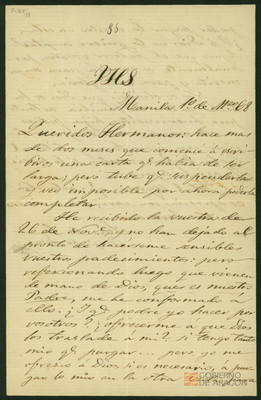 85.
JHS
Manila 1º de Mzo 68
Queridos Hermanos: hace mas
de dos meses que comencé à escri
biros una carta q. habia de ser
larga; pero tube q.
y veo imposible por ahora poderla
completar.
He recibido la vuestra de
26 de Nov. y no han dejado al
pronto de hacerseme sensibles
vuestros padecimientos: pero
reflexionando luego que vienen
de mano de Dios, que es nuestro
Padre, me he conformado à
ello. ¿Y q. podre yo hacer por
vosotros? ¿ofrecerme a que Dios
los traslade à mi? si tengo tanto
mio q. purgar.. pero yo me
ofrezco à Dios si es necesario, a pur
gar lo mio en la otra
GOBIERNO
DE ARAGON